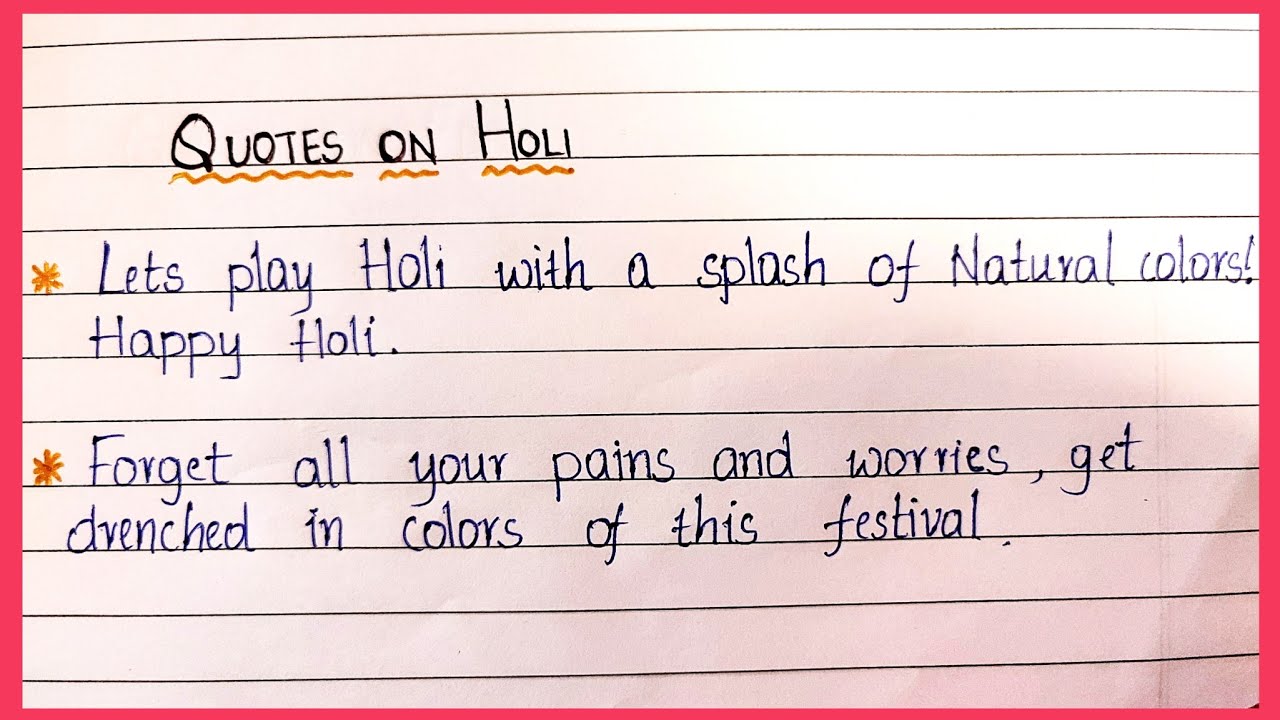 QUOTES ON HOLI
* Lets play Holi with a splash of Natural colors!
Happy Holi.
* Forget all your pains and worries, get
drenched in colors of this festival.